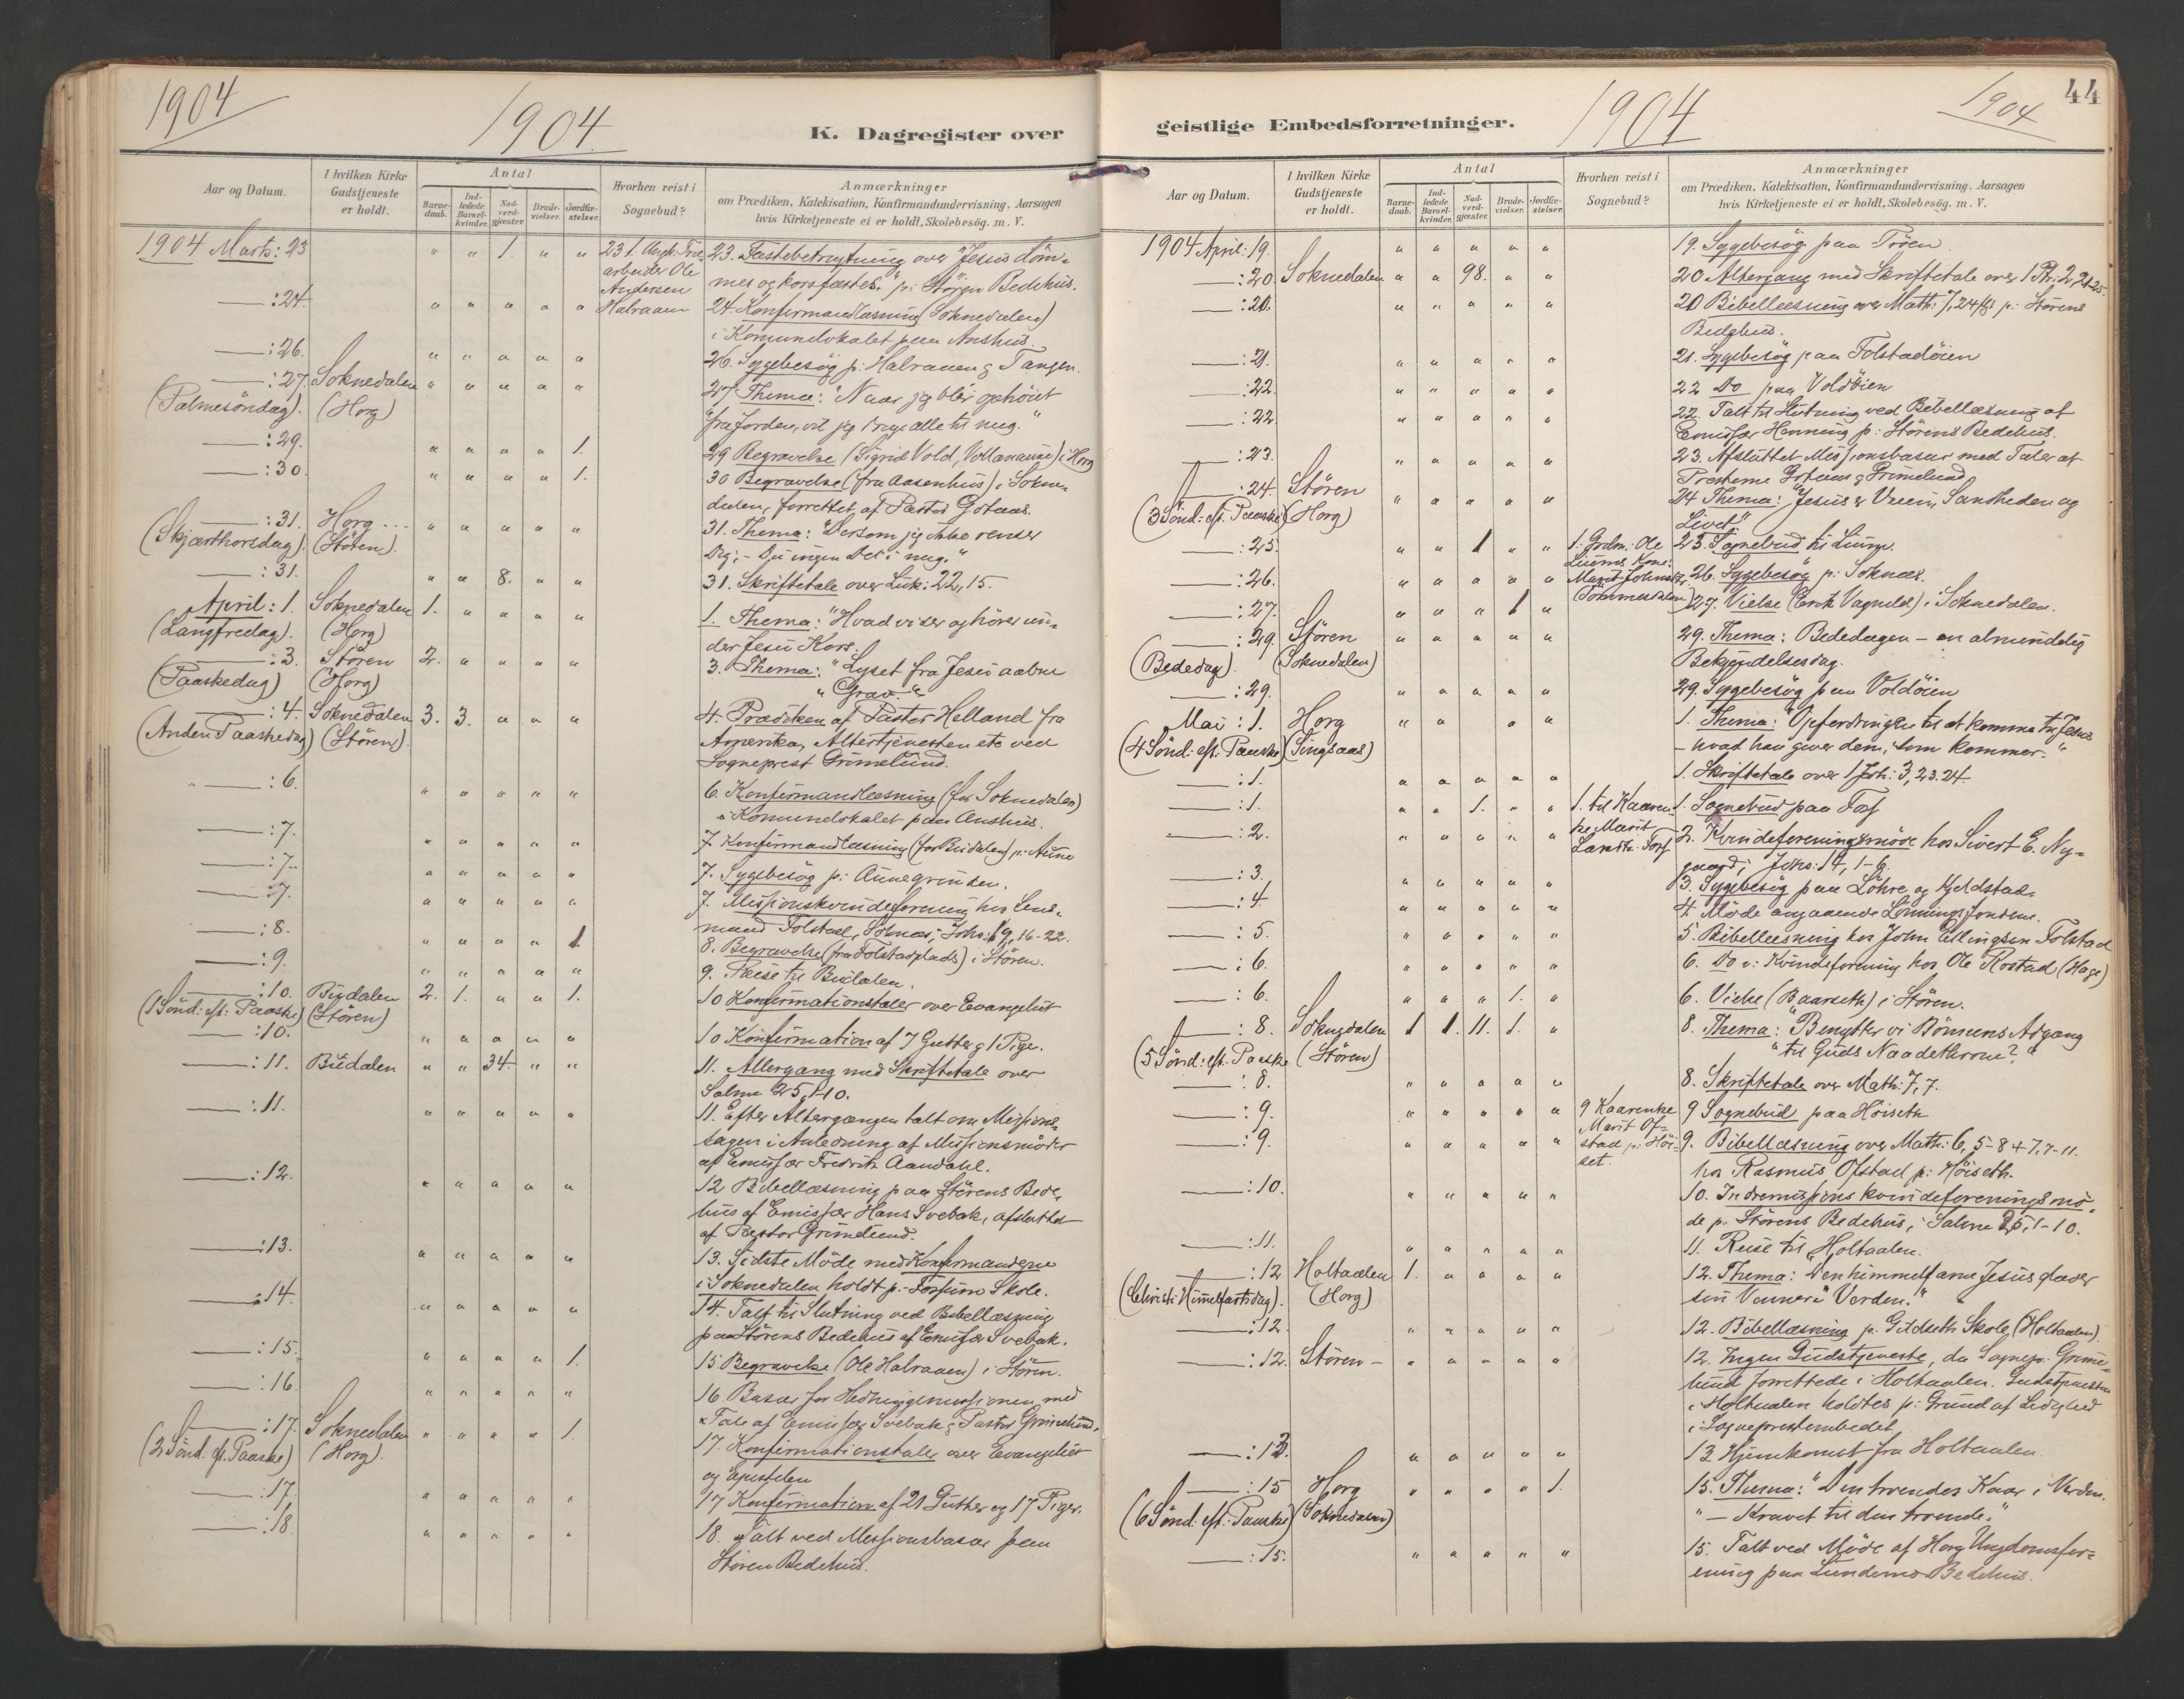 1904
1904
K. Dagregister over
Aar og Datum.
I hvilken Kirke Gudstjeneste er holdt.
Antal
Barne-daab.
Ind-ledede Barsel-kvinder.
Nad-verd-gjæster.
Brude-vielser.
Jordfæ-stelser.
Hvorhen reist i Sognebud?
Anmærkninger
om Prædiken, Katekisation, Konfirmandundervisning, Aarsagen
hvis Kirketjeneste ei er holdt, Skolebesøg. m. V.
1904 Marts: 23 " " 1. " " 23. Fastebetragtning over "Jesus döm-
arbeider Ole mes og korsfæstes." p: Stören Bedehus.
Andersen
: 24 " " " " " Halraaen 24. Konfirmandlæsning (Soknedalen)
i Komunelokalet paa Anshus.
: 26. " " " " " 26. Sygebesög p: Halraaen & Tangen.
: 27. Soknedalen " " " " " 27. Thema: "Naar jeg blir ophöiet
(Palmesöndag). (Horg) "fra Jorden, vil jeg drage alle til mig."
: 29. " " " " 1. 29 Begravelse (Sigrid Vold, ) i Horg
: 30. " " " " 1. 30 Begravelse (fra Aasenhus) i Sokne-
dalen, forrettet af Pastor Gotaas.
: 31. Horg " " " " " 31. Thema: "Dersom jeg ikke renser
(Skjærthorsdag). (Stören). Dig, - Du ingen Del i mig."
: 31. " " 8. " " 31. Skriftetale over Luk: 22, 15.
April: 1. Soknedalen 1. " " " " 1. Thema: "Hvad vi ser og hörer un-
(Langfredag). (Horg) der Jesu Kors.
: 3. Stören 2. " " " " 3. Thema: "Lyset fra Jesu aabne
(Paaskedag) (Horg) "Grav."
: 4. Soknedalen 3. 3. " " " 4. Prædiken af Pastor Helland fra
(Anden Paaskedag) (Stören). Amerika, Altertjenesten etc ved
Sogneprest Grimelund.
: 6. " " " " " 6. Konfirmandlæsning (for Soknedalen)
i Komunelokalet paa Anshus.
: 7. " " " " " 7. Konfirmandlæsning (for Budalen) p: Aune
: 7. " " " " " 7. Sygebesög p: Aunegrinden.
: 7. " " " " " 7. Missionskvindeforening hos Lens-
mand Folstad, Soknæs; Joh: 19, 16-22.
: 8. " " " " 1 8. Begravelse (fra Folstadplads) i Stören.
: 9. " " " " " 9. Reise til Budalen.
: 10. Budalen 2. 1. " " 1. 10 Konfirmationstaler over Evangeliet
(1 Sönd: eft: Paaske) (Stören)
: 10. " " " " " 10 Konfirmation af 7 Gutter & 1 Pige.
: 11. Budalen " " 34. " " 11. Altergang med Skriftetale over
Salme 25, 1-10.
: 11. " " " " " 11. Efter Altergangen talt om Missions-
sagen i Anledning af Missionsmöder
af Emissær Fredrik Aandahl.
: 12. " " " " " 12 Bibellæsning paa Störens Bede-
hus af Emissær Hans Svebak, afsluttet
af Pastor Grimelund.
: 13. " " " " " 13. Sidste Möde med Konfirmanderne
i Soknedalen holdt p: Fossum Skole.
: 14. " " " " " 14. Talt til Slutning ved Bibellæsning
paa Störens Bedehus af Emissær Svebak.
: 15. " " " " 1. 15 Begravelse (Ole Halraaen) i Stören.
: 16. " " " " " 16 Basar for Hedningemissionen med
Tale af Emissær Svebak & Pastor Grimelund.
: 17. Soknedalen " " " " 1. 17. Konfirmationstaler over Evangeliet
(2 Sönd: eft. Paaske) (Horg). og Epistelen
: 17. " " " " " 17 Konfirmation af 21 Gutter og 17 Piger.
: 18. " " " " " 18. Talt ved Missionsbasar paa
Stören Bedehus.
44
1904
1904
geistlige Embedsforretninger.
Aar og Datum.
I hvilken Kirke Gudstjeneste er holdt.
Antal
Barne-daab.
Ind-ledede Barsel-kvinder.
Nad-verd-gjæster.
Brude-vielser.
Jordfæ-stelser.
Hvorhen reist i Sognebud?
Anmærkninger
om Prædiken, Katekisation, Konfirmandundervisning, Aarsagen
hvis Kirketjeneste ei er holdt, Skolebesög. m. V.
1904 April: 19. " " " " " 19. Sygebesög paa Tröen.
: 20. Soknedalen " " 98. " " 20 Altergang med Skriftetale over 1 Pt: 2, 21-25.
: 20. " " " " " 20 Bibellæsning over Math: 7, 24 ff p: Störens
Bedehus.
: 21. " " " " " 21. Sygebesög paa Folstadöien
: 22. " " " " " 22 Do paa Voldöien
: 22. " " " " " 22. Talt til Slutning ved Bibellæsning af
Emissær Henning p: Störens Bedehus.
: 23. " " " " " 23. Afsluttet Missionsbasar med Taler af
Presterne Gotaas & Grimelund
: 24. Stören " " " " " 24 Thema: "Jesus er Veien, Sandheden og
(3 Sönd: eft. Paaske) (Horg) Livet."
: 25. " " 1 " " 1. Grdm. Ole 25. Sognebud til Lium.
Liums Kone:
: 26. " " " " " Marit Johnsdtr. 26. Sygebesög p: Soknæs.
: 27. " " " 1 " 27. Vielse (Erik Vagnild) i Soknedalen.
: 29. Stören " " " " " 29. Thema: Bededagen - en almindelig
(Bededag). (Soknedalen) Bekjendelsesdag.
: 29. " " " " " 29. Sygebesög paa Voldöien
Mai: 1. Horg " " " " 1. Thema: "Opfordringen til at komme til Jesus
(4 Sönd: eft: Paaske) (Singsaas) - hvad han giver dem, som kommer."
: 1. " " " " " 1. Skriftetale over 1 Joh: 3, 23. 24.
: 1. " " 1. " " 1. til Kaaren- 1. Sognebud paa Fosf
ke Marit
: 2. " " " " " 2. Kvindeforeningsmöde hos Sivert E. Ny-
gaard; Joh: 14, 1-6.
: 3. " " " " " 3. Sygebesög paa Löhre og Kjeldstad.
: 4. " " " " " 4. Möde angaaende Lönningsfondene.
: 5. " " " " " 5. Bibellæsning hos John Ellingsen Folstad
: 6. " " " " " 6. Do i: Kvindeforening hos Ole Rostad (Hage)
: 6. " " " 1. " 6. Vielse (Baarseth) i Stören.
: 8. Soknedalen 1 1. 11. 1. " 8. Thema: "Benytter vi Bönnens Adgang
(5 Sönd: eft. Paaske (Stören) "til Guds Naadethrone?"
: 8. " " " " " 8. Skriftetale over Math: 7, 7.
: 9. " " " " " 9 Kaarenke 9 Sognebud paa Höiseth
Marit Of-
: 9. " " " " " stad p: Höi- 9. Bibellæsning over Math: 6, 5-8 + 7, 7-11.
set. hos Rasmus Ofstad p: Höiseth.
: 10. " " " " " 10. Indremissions kvindeforeningsmö-
de p: Störens Bedehus; Salme 25, 1-10.
: 11. " " " " " 11. Reise til Holtaalen.
: 12 Holtaalen 1. " " " " 12. Thema: "Den himmelfarne Jesus glæder
(Christi Himmelfartsdag). (Horg) sin Venner i Verden."
: 12. " " " " " 12. Bibellæsning p: Gildseth Skole (Holtaalen)
: 12. Stören - " " " " " 12. Ingen Gudstjeneste, da Sognepr: Grime-
lund forrettede i Holtaalen. Gudstjenesten
i Holtaalen holdtes p: Grund af Ledighed
i Sogneprestembedet
: 13. " " " " " 13 Hjemkomst fra Holtaalen.
: 15 Horg " " " " 1. 15. Thema: "Den troendes Kaar i Verden.
(6 Sönd: eft. Paaske) (Soknedalen) "- Kravet til den troende."
: 15. " " " " " 15. Talt ved Möde af Horg Ungdomsfor-
ening paa Lundemo Bedehus.